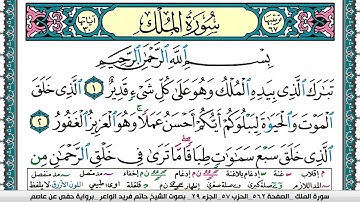 سُورَةُ الْمُلْكِ
بِسْمِ اللَّهِ الرَّحْمَٰنِ الرَّحِيمِ
تَبَارَكَ الَّذِي بِيَدِهِ الْمُلْكُ وَهُوَ عَلَىٰ كُلِّ شَيْءٍ قَدِيرٌ ١ الَّذِي خَلَقَ
الْمَوْتَ وَالْحَيَوٰةَ لِيَبْلُوَكُمْ أَيُّكُمْ أَحْسَنُ عَمَلًا ۚ وَهُوَ الْعَزِيزُ الْغَفُورُ ٢
الَّذِي خَلَقَ سَبْعَ سَمَٰوَٰتٍ طِبَاقًا ۖ مَّا تَرَىٰ فِي خَلْقِ الرَّحْمَٰنِ مِن
سورة الملك - الصفحة ٥٦٢ - الحزب ٥٧ - الجزء ٢٩ بصوت الشيخ حاتم فريد الواعر - برواية حفص عن عاصم